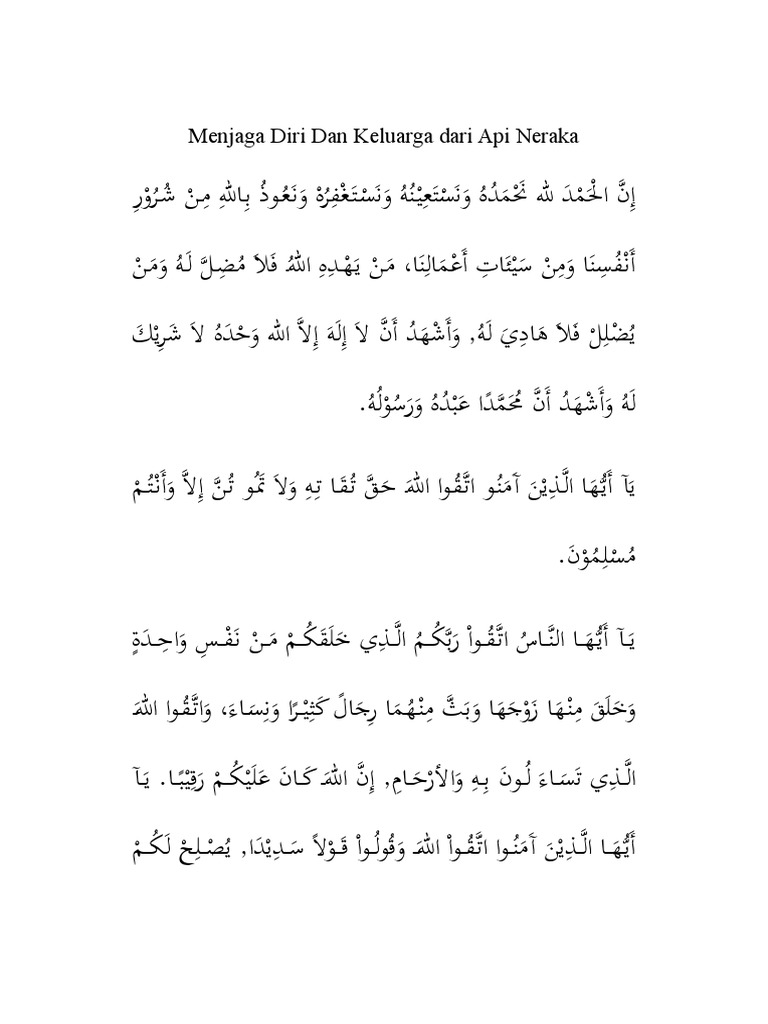 Menjaga Diri Dan Keluarga dari Api Neraka
إِنَّ الْحَمْدَ لله نَحْمَدُهُ وَنَسْتَعِيْنُهُ وَنَسْتَغْفِرُهْ وَنَعُوذُ بِاللهِ مِنْ شُرُوْرِ
أَنْفُسِنَا وَمِنْ سَيْئَاتِ أَعْمَالِنَا، مَنْ يَهْدِهِ اللهُ فَلاَ مُضِلَّ لَهُ وَمَنْ
يُضْلِلْ فَلاَ هَادِيَ لَهُ, وَأَشْهَدُ أَنَّ لاَ إِلَهَ إِلاَّ الله وَحْدَهُ لاَ شَرِيْكَ
لَهُ وَأَشْهَدُ أَنَّ مُحَمَّدًا عَبْدُهُ وَرَسُوْلُهُ.
يَآ أَيُّهَا الَّذِيْنَ آمَنُو اتَّقُوا اللهَ حَقَّ تُقَا تِهِ وَلاَ تَمُو تُنَّ إِلاَّ وَأَنْتُمْ
مُسْلِمُوْنَ.
يَآ أَيُّهَا النَّاسُ اتَّقُواْ رَبَّكُمُ الَّذِي خَلَقَكُمْ مَنْ نَفْسِ وَاحِدَةٍ
وَخَلَقَ مِنْهَا زَوْجَهَا وَبَثَّ مِنْهُمَا رِجَالً كَثِيْرًا وَنِسَاءَ، وَاتَّقُوا اللهَ
الَّذِي تَسَاءَ لُونَ بِهِ وَالأرْحَامِ, إِنَّ اللهَ كَانَ عَلَيْكُمْ رَقِيْبًا. يَآ
أَيُّهَا الَّذِيْنَ آمَنُوا اتَّقُواْ اللهَ وَقُولُواْ قَوْلاً سَدِيْدَا, يُصْلِحْ لَكُمْ